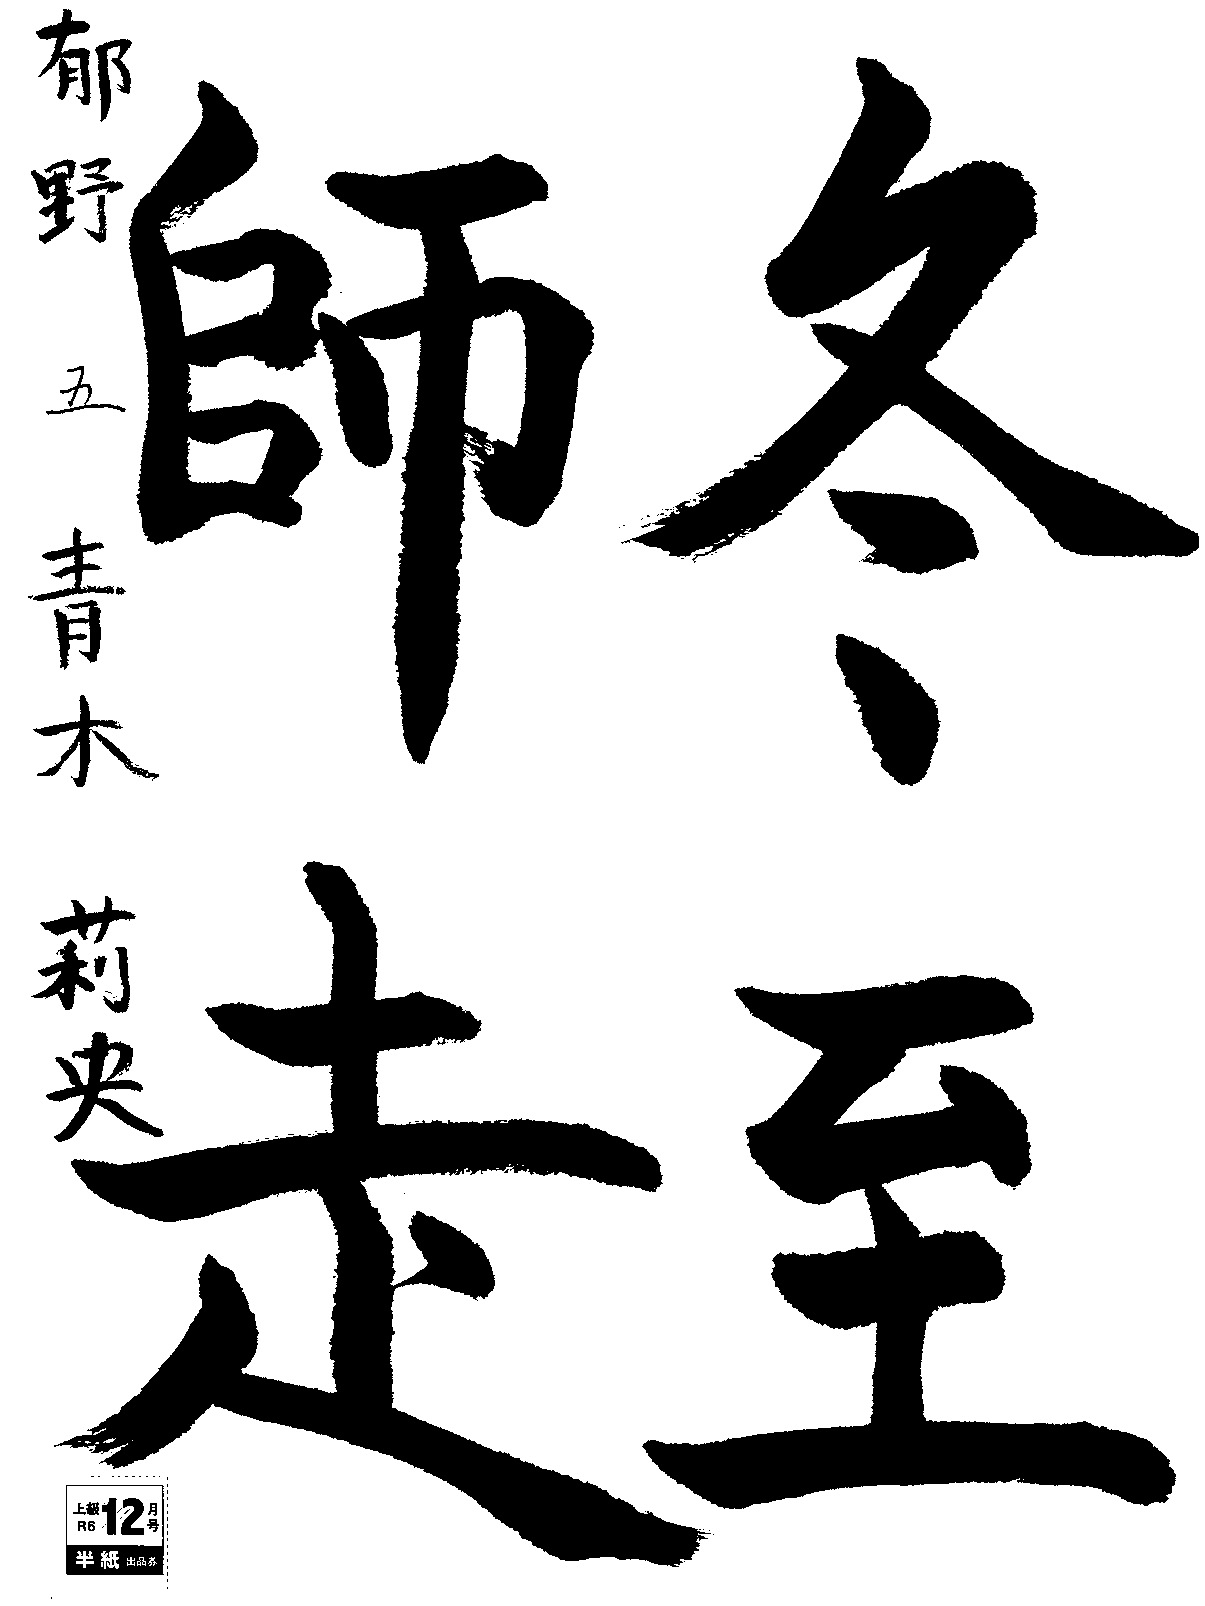 冬至
師走
郁野 五 青木 莉央
上級 R6 12月号
半紙 出品券